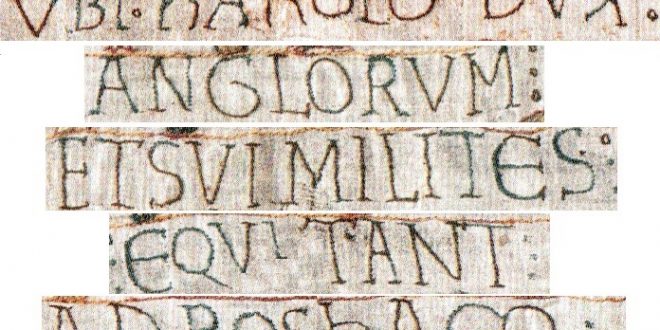 VBI: HAROLD DVX:
ANGLORVM:
ET SVI MILITES:
:EQVITANT:
AD BOSHAM: